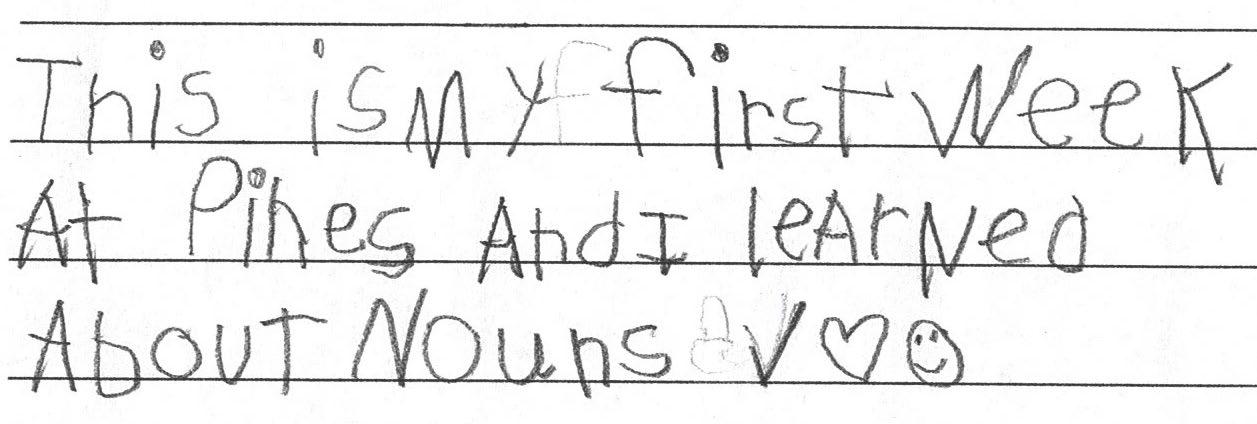 This is My first Week
At Pines And I leArNed
About Nouns V♡☺